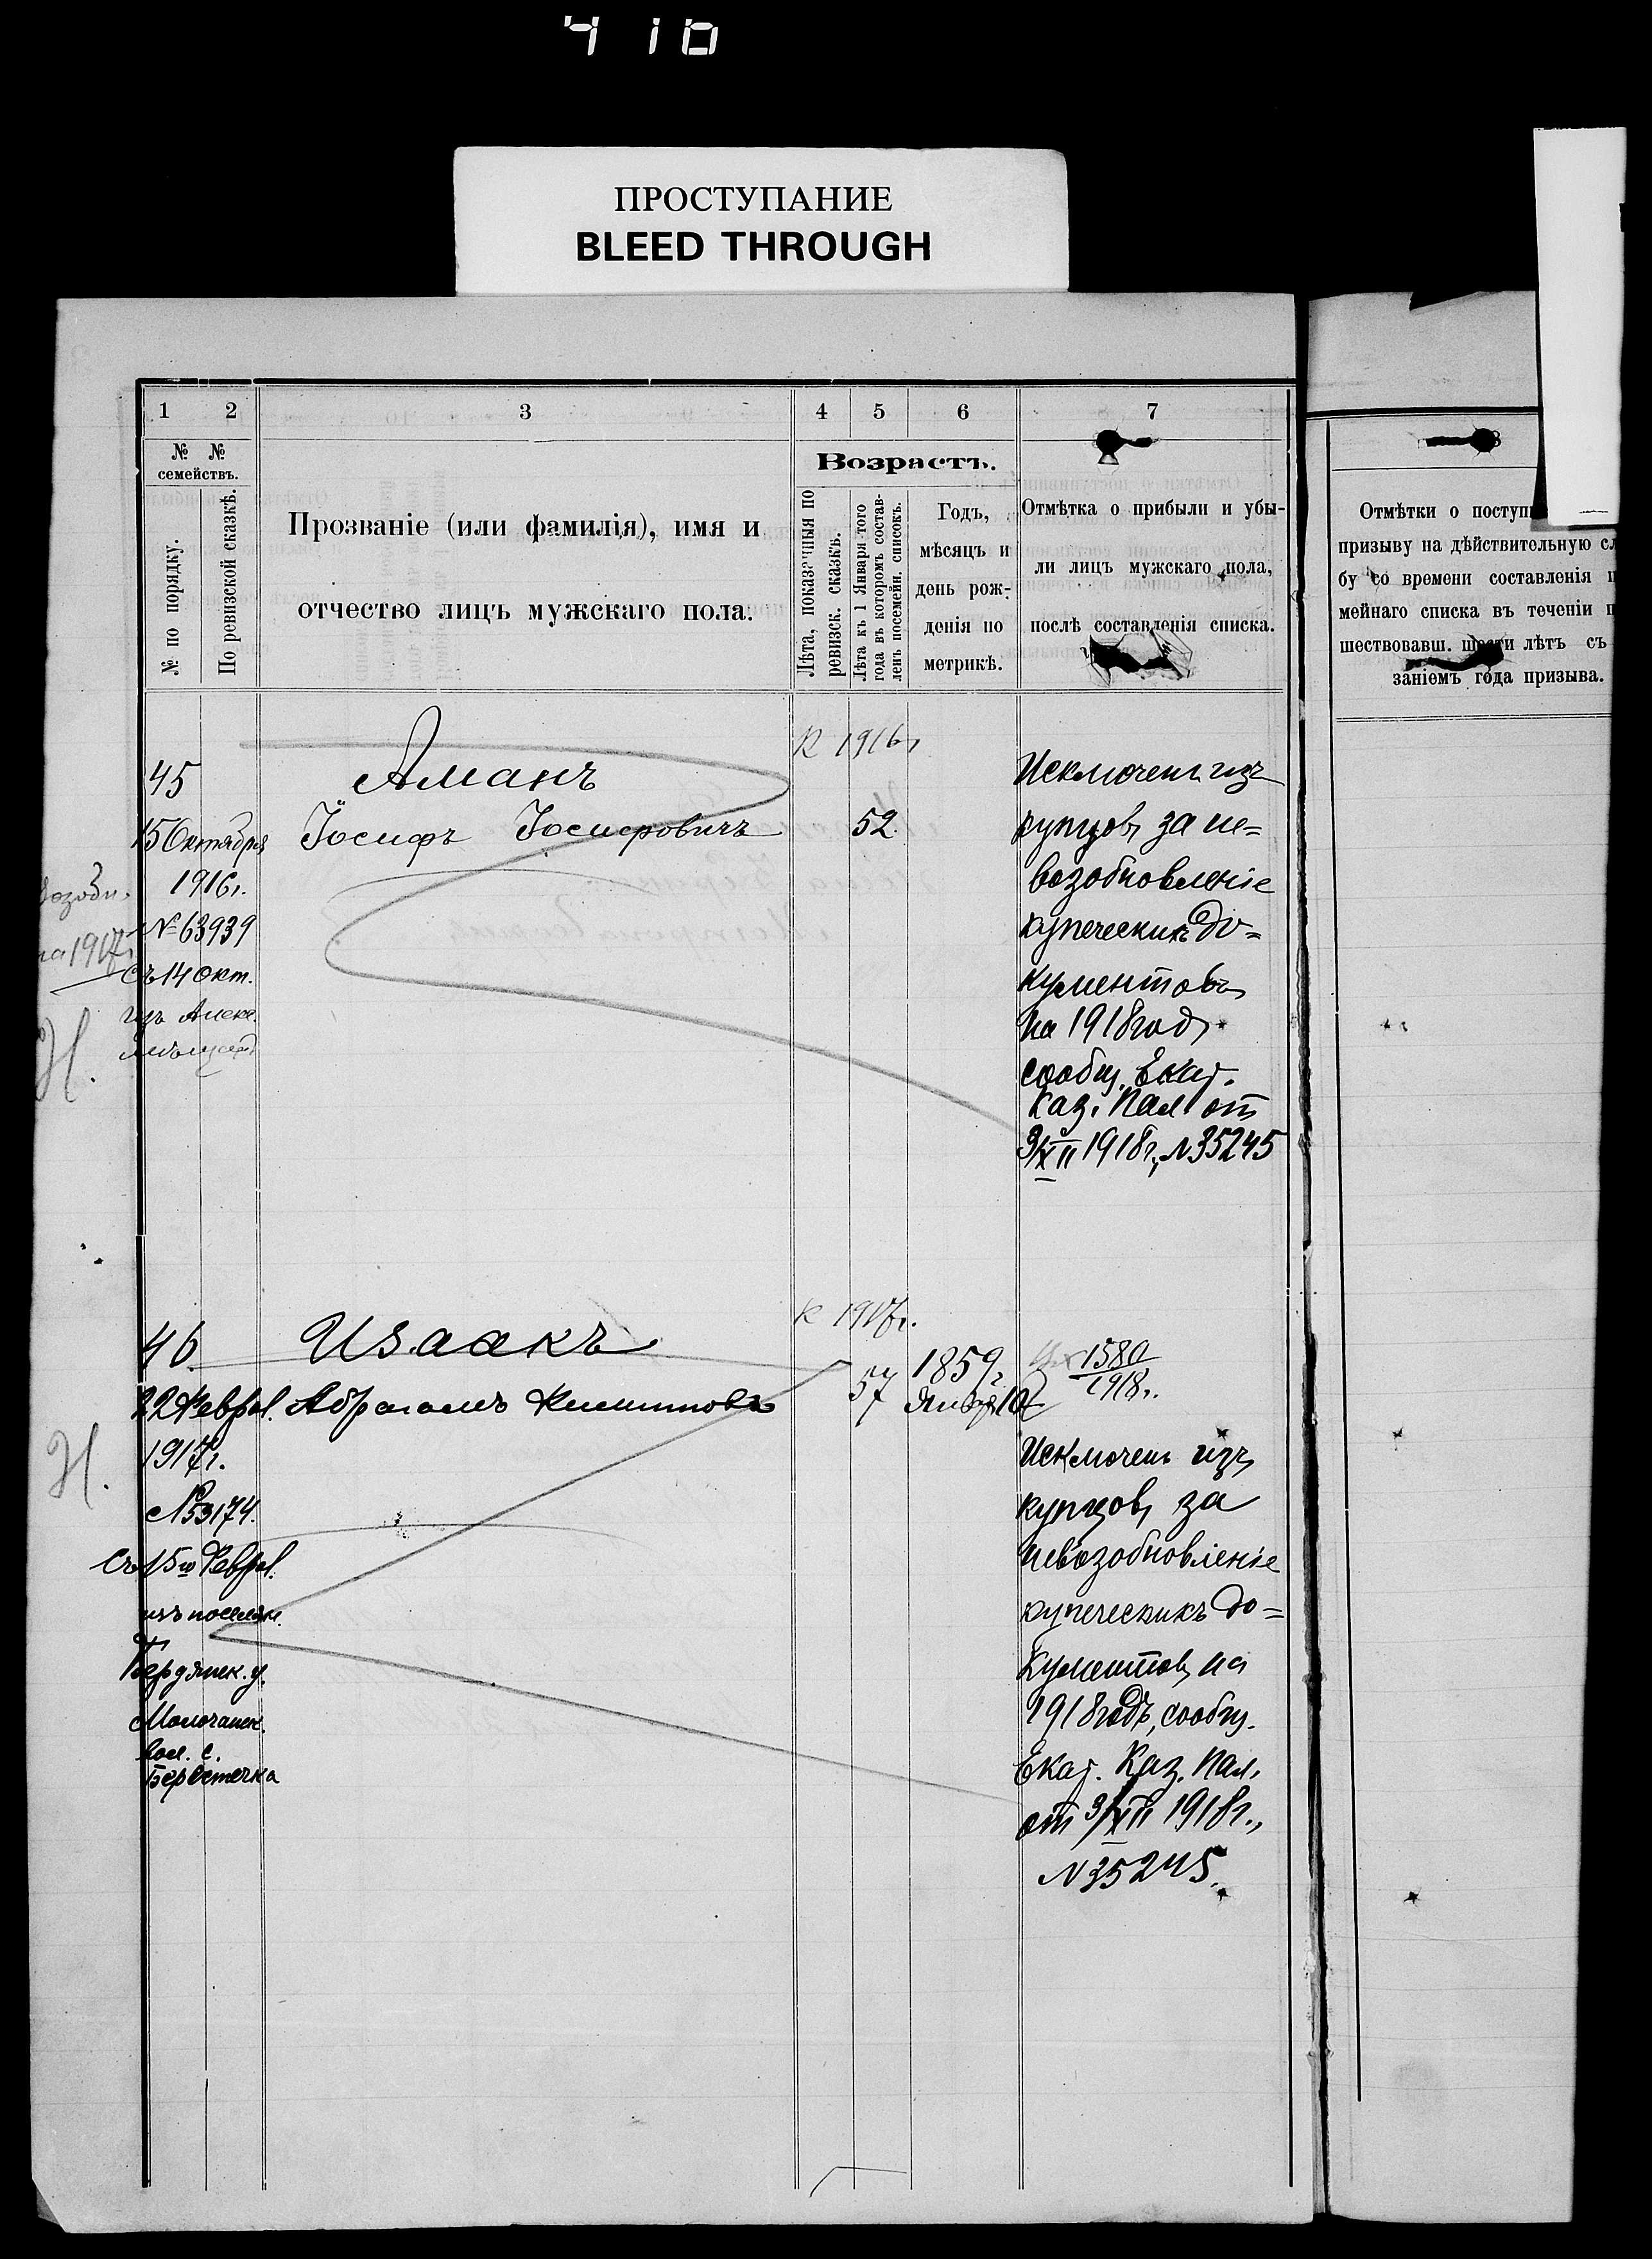 410
ПРОСТУПАНИЕ
BLEED THROUGH
1 2 3 4 5 6 7
№ № семействъ.
№ по порядку.
По ревизской сказкѣ.
Прозваніе (или фамилія), имя и
отчество лицъ мужскаго пола.
Возрастъ.
Лѣта, показанныя по
ревизск. сказкѣ.
Лѣта къ 1 Января того
года въ которомъ состав-
ленъ посемейн. списокъ.
Годъ,
мѣсяцъ и
день рож-
денія по
метрикѣ.
Отмѣтка о прибыли и убы-
ли лицъ мужскаго пола,
послѣ составленія списка.
8
Отмѣтки о поступ
призыву на дѣйствительную сл
бу со времени составленія п
мейнаго списка въ теченіи п
шествовавш. шести лѣтъ съ
заніемъ года призыва.
К 1916г
45
Аманъ
15 Октября
Іосифъ Іосифовичъ
52.
1916г.
№ 63939
съ 14 Окт.
изъ Алекс.
возобн.
на 1917г.
И.
Исключенъ изъ
купцовъ за не=
возобновленіе
купеческихъ до=
кументовъ
на 1918 годъ
сообщ. Екат.
Каз. Пал. от
3/XII 1918г., N 35245
К 1917г.
46
Изаакъ
22 Феврал.
Абрагамъ
57
1859г
Январ. 10
1580
1918г.
1917г.
№ 53174.
Съ 15го Феврал.
изъ поселян.
Бердянск. у.
Молочанск.
вол. с.
Берестечка
И.
Исключенъ изъ
купцовъ за
невозобновленіе
купеческихъ до=
кументовъ на
1918 годъ, сообщ.
Екат. Каз. Пал.
от 3/XII 1918г.,
N 35245.